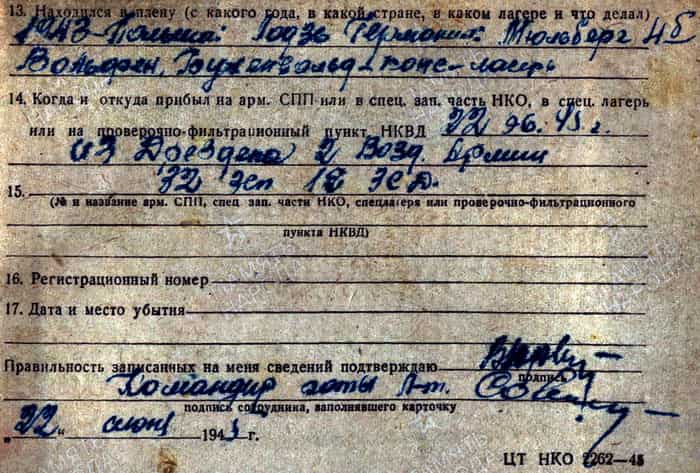 13. Находился в плену (с какого года, в какой стране, в каком лагере и что делал)
1943-Польша: Лодзь Германия: Мюльберг 4б
Вольфен, Бухенвальд-конс-лагерь
14. Когда и откуда прибыл на арм. СПП или в спец. зап. часть НКО, в спец. лагерь
или на проверочно-фильтрационный пункт НКВД 22 06. 45 г.
из Дрездена 2 Возд. Армии
15. 32 зсп 12 ЗСД.
(№ и название арм. СПП, спец. зап. части НКО, спецлагеря или проверочно-фильтрационного
пункта НКВД)
16. Регистрационный номер
17. Дата и место убытия
Правильность записанных на меня сведений подтверждаю
подпись
Командир роты Л-т.
подпись сотрудника, заполнявшего карточку
„22" июня 1945 г.
ЦТ НКО 2262—45